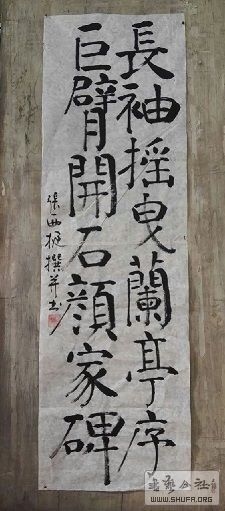 長袖摇曳蘭亭序
巨臂開石顔家碑
張西挺撰并书
書艺公社
WWW.SHUFA.ORG